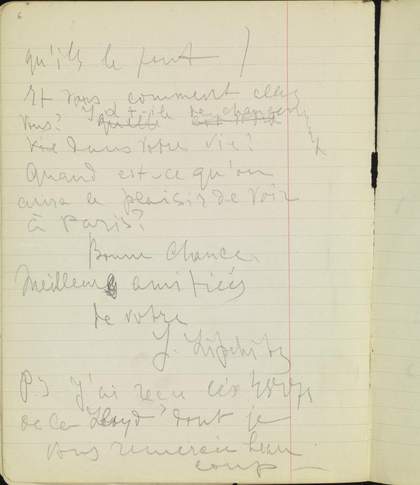 6
qu'ils le sont )
Et vous comment chez
vous? Y a-t-il de changem
dans votre vie?
Quand est-ce qu'on
aura le plaisir de voir
à Paris?
Bonne chance.
Meilleurs amitiés
de votre
J. Lipchitz
PS J'ai reçu
de la Lloyd dont je
vous remercie beau
coup —